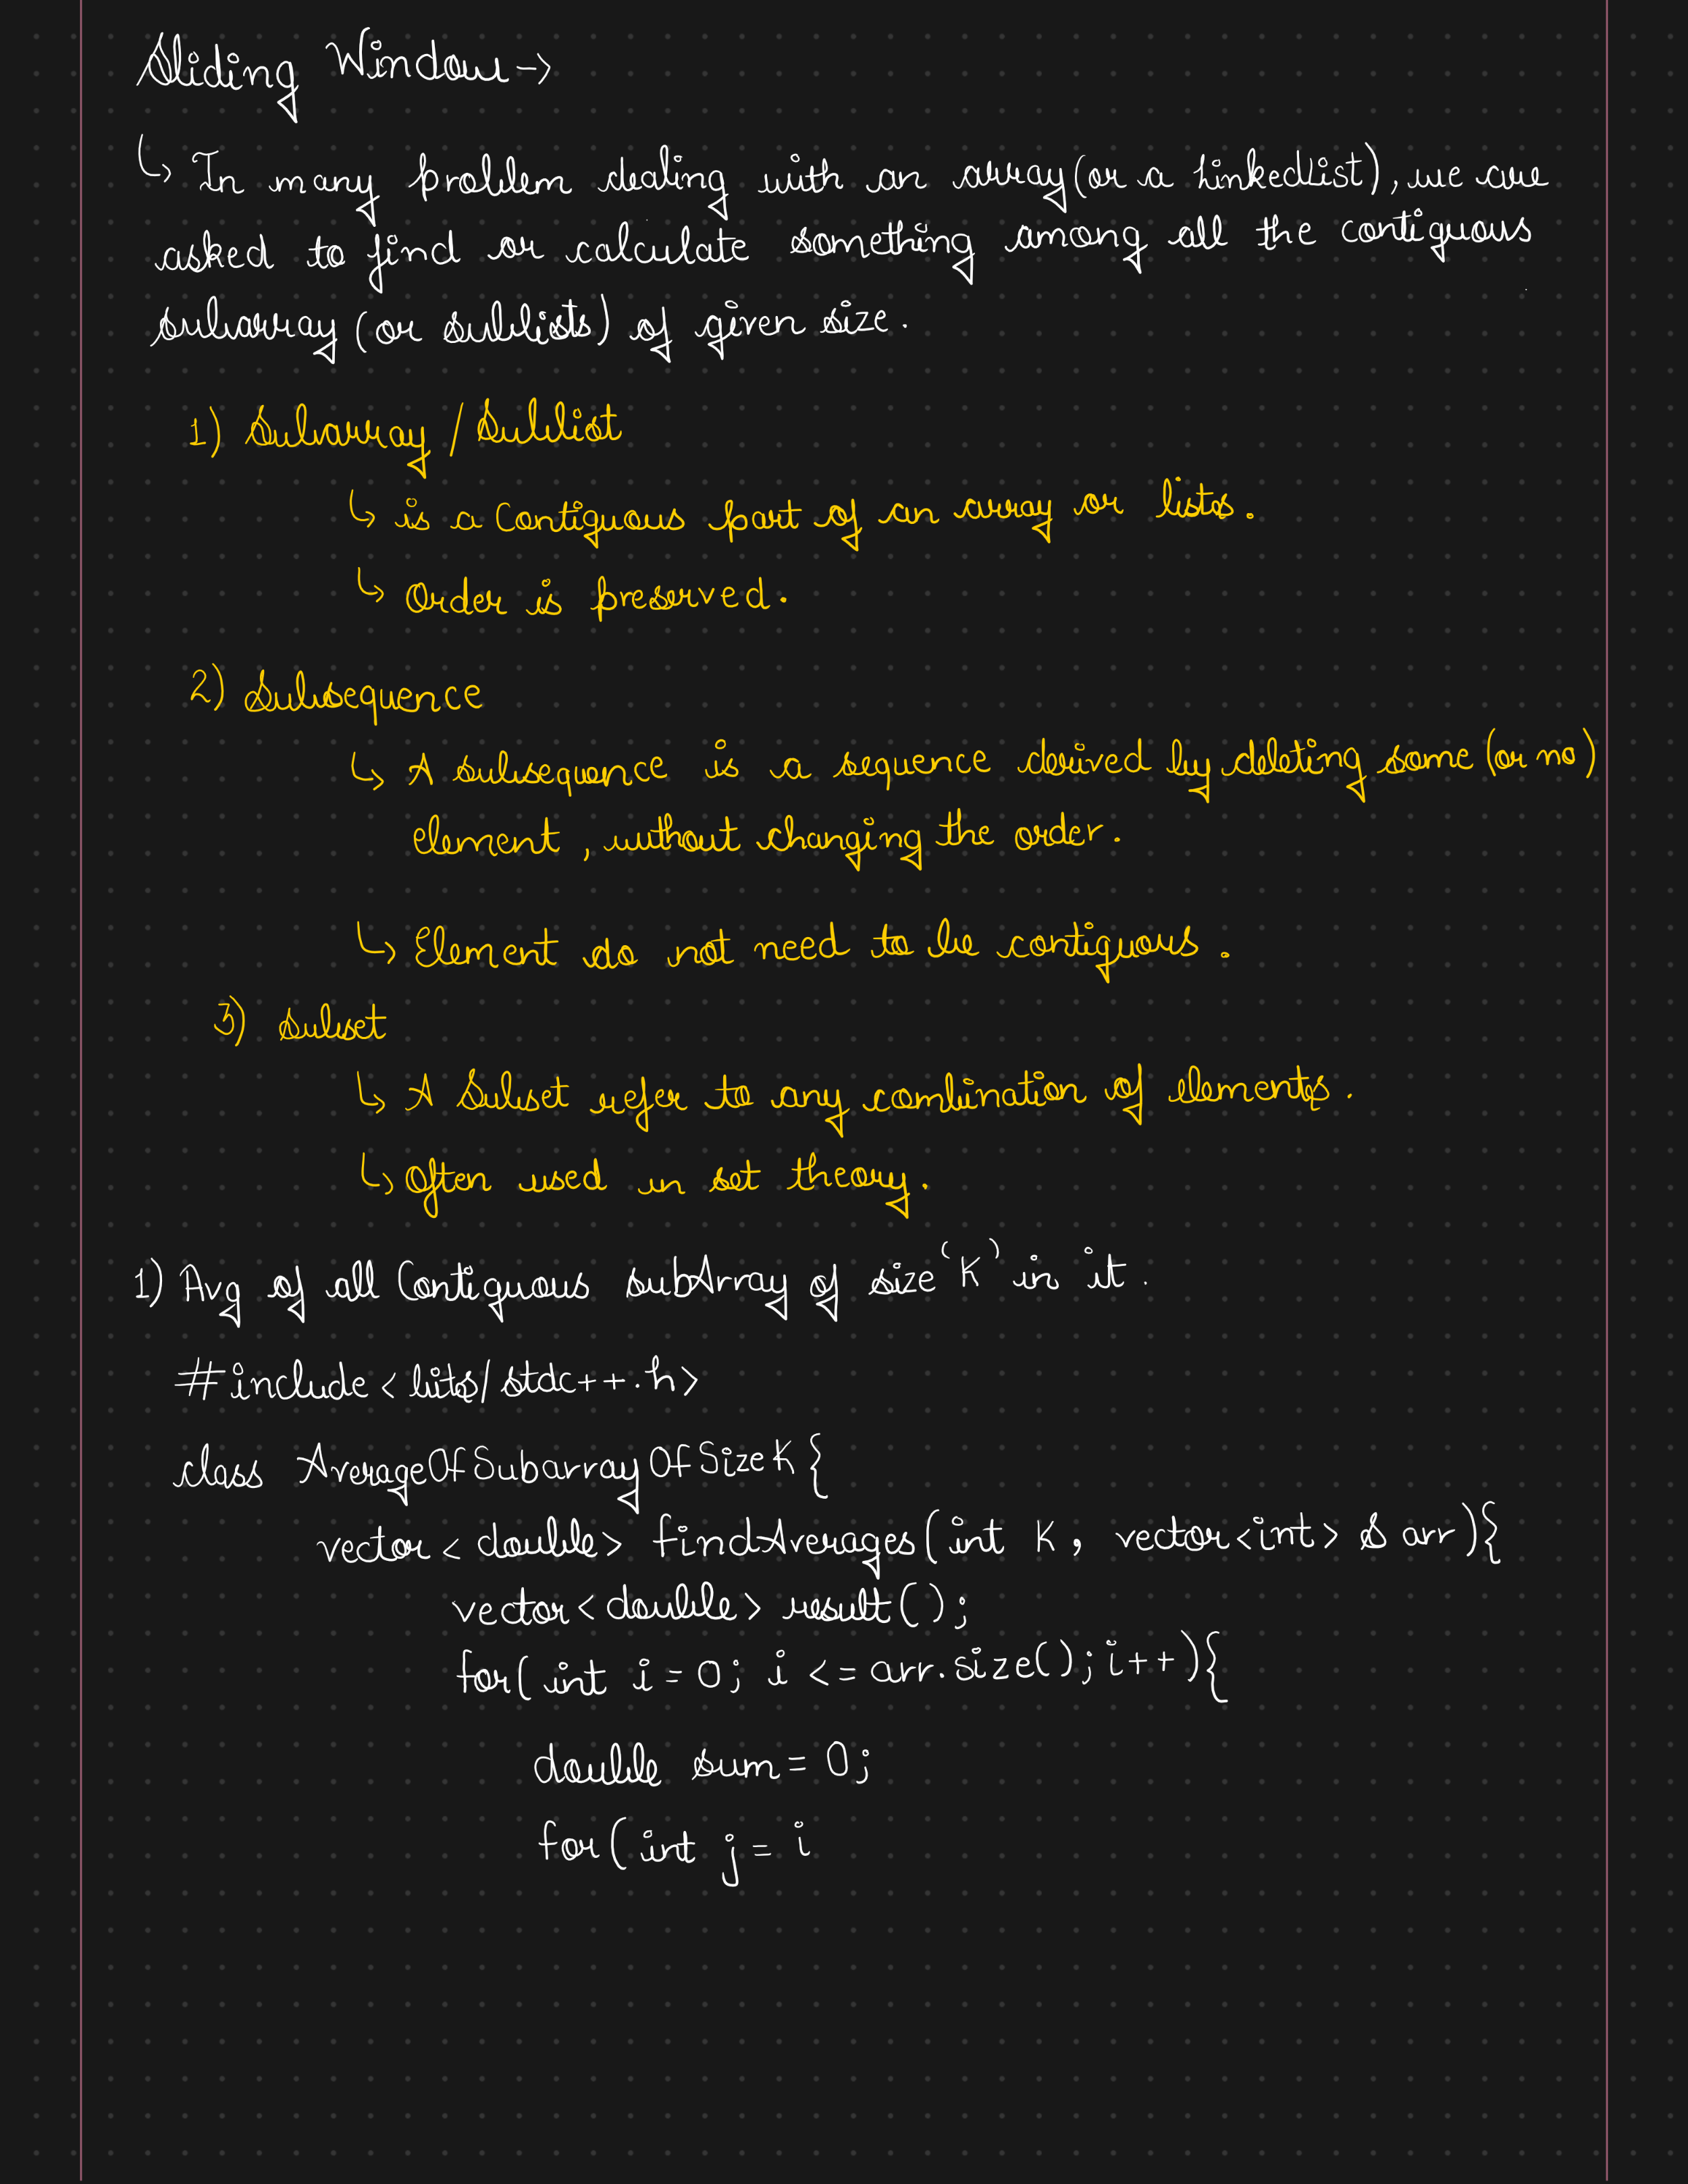 Sliding Window →
↳ In many problem dealing with an array (or a LinkedList), we are
asked to find or calculate something among all the contiguous
subarray (or sublists) of given size.
1) Subarray / Sublist
↳ is a Contiguous part of an array or lists.
↳ Order is preserved.
2) Subsequence
↳ A subsequence is a sequence derived by deleting some (or no)
element, without changing the order.
↳ Element do not need to be contiguous.
3) Subset
↳ A Subset refer to any combination of elements.
↳ Often used in set theory.
1) Avg of all Contiguous subArray of size 'K' in it.
#include <bits/stdc++.h>
class AverageOfSubarrayOfSizeK {
vector<double> findAverages(int K, vector<int> & arr){
vector<double> result();
for(int i = 0; i <= arr.size(); i++){
double sum = 0;
for(int j = i